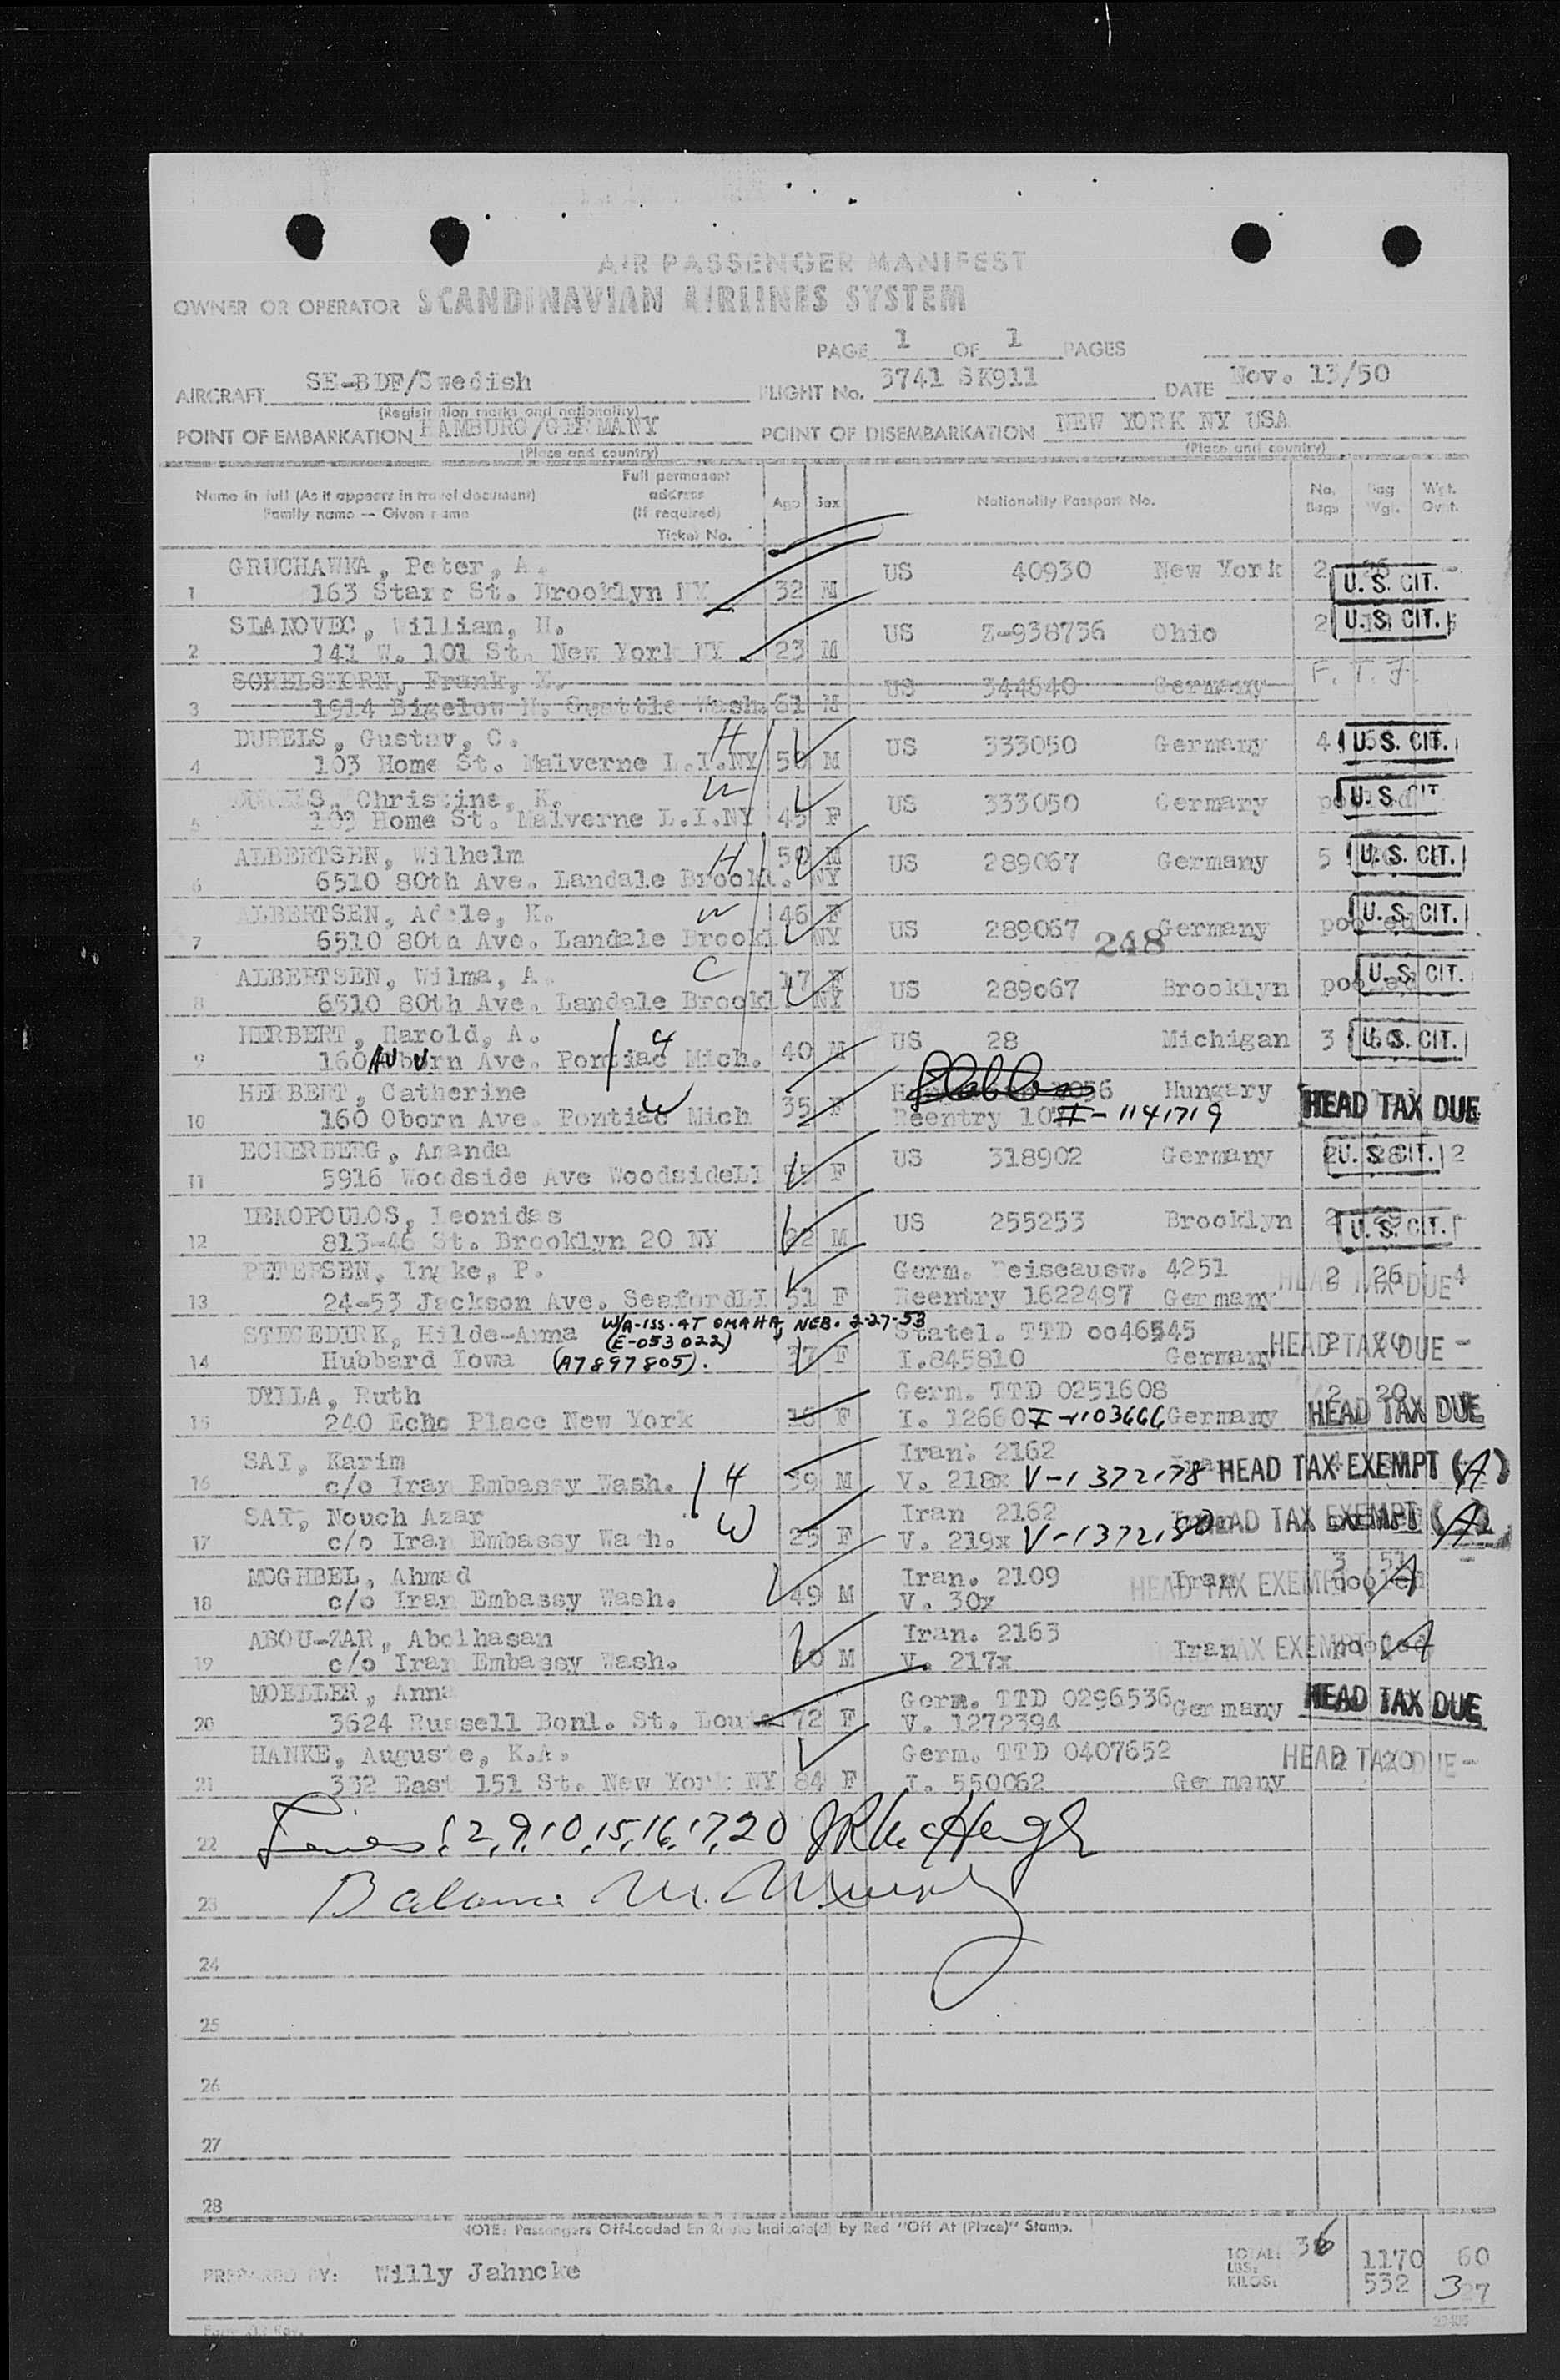 AIR PASSENGER MANIFEST
OWNER OR OPERATOR SCANDINAVIAN AIRLINES SYSTEM
PAGE 1 OF 1 PAGES
AIRCRAFT SE-BDF/Swedish FLIGHT No. 3741 SK911 DATE Nov. 13/50
(Registration marks and nationality)
POINT OF EMBARKATION HAMBURG/GERMANY POINT OF DISEMBARKATION NEW YORK NY USA
(Place and country) (Place and country)
Name in full (As it appears in travel document) Family name — Given name Full permanent address (If required) Ticket No. Age Sex Nationality Passport No. No. Bags Bag Wgt. Wgt. Ovrt.
GRUCHAWKA, Peter, A. US 40930 New York 2 U. S. CIT.
1 163 Starr St. Brooklyn NY 32 M
SLANOVEC, William, H. US Z-938736 Ohio 2 U. S. CIT.
2 141 W. 101 St. New York NY 23 M
SCHELSHORN, Frank, US 344840 Germany F. T. J.
3 1914 Bigelow N. Seattle Wash. 61 M
DUBELS, Gustav, C. H US 333050 Germany 4 U. S. CIT.
4 103 Home St. Malverne L.I.NY M
Christine, K. W US 333050 Germany pooled U. S. CIT.
5 103 Home St. Malverne L.I.NY 45 F
ALBERTSEN, Wilhelm H 50 M US 289067 Germany 5 U. S. CIT.
6 6510 80th Ave. Landale Brookl. NY
ALBERTSEN, Adele, K. W 46 F US 289067 Germany pooled U. S. CIT.
7 6510 80th Ave. Landale Brookl NY 248
ALBERTSEN, Wilma, A. C 17 F US 289067 Brooklyn pooled U. S. CIT.
8 6510 80th Ave. Landale Brookl NY
HERBERT, Harold, A. H US 28 Michigan 3 U. S. CIT.
9 160 Auburn Ave. Pontiac Mich. 40 M
HERBERT, Catherine W Hungary HEAD TAX DUE
10 160 Oborn Ave. Pontiac Mich 35 F Reentry I-1141719
ECKERBERG, Amanda US 318902 Germany 2 U. S. CIT. 28 2
11 5916 Woodside Ave WoodsideLI F
DEMOPOULOS, Leonidas US 255253 Brooklyn 2 U. S. CIT.
12 813-46 St. Brooklyn 20 NY 22 M
PETERSEN, Ingke, P. Germ. Reiseausw. 4251 2 26 4 HEAD TAX DUE
13 24-53 Jackson Ave. SeafordLI 51 F Reentry 1622497 Germany
W/A-ISS. AT OMAHA, NEB. 2-27-53
STEGEDIRK, Hilde-Anna (E-053022) Statel. TTD 0046545 HEAD TAX DUE -
14 Hubbard Iowa (A7897805). 37 F I.845810 Germany
DYLLA, Ruth Germ. TTD 0251608 2 20
15 240 Echo Place New York 16 F I. 12660 I-1103666 Germany HEAD TAX DUE
SAI, Karim Iran. 2162
16 c/o Iran Embassy Wash. H 39 M V. 218x V-1372178 HEAD TAX EXEMPT (A)
SAI, Nouch Azar W Iran 2162 HEAD TAX EXEMPT (A)
17 c/o Iran Embassy Wash. 25 F V. 219x V-1372180
MOGHBEL, Ahmad Iran. 2109 Iran HEAD TAX EXEMPT pooled A
18 c/o Iran Embassy Wash. 49 M V. 30x
ABOU-ZAR, Abolhasan Iran. 2163 Iran HEAD TAX EXEMPT pooled A
19 c/o Iran Embassy Wash. M V. 217x
MOELLER, Anna Germ. TTD 0296536 Germany HEAD TAX DUE
20 3624 Russell Bonl. St. Louis 72 F V. 1272394
HANKE, Auguste, K.A. Germ. TTD 0407652 HEAD TAX DUE - 2 20
21 332 East 151 St. New York NY 84 F I. 550062 Germany
22 Lines 1, 2, 9, 10, 15, 16, 17, 20
23 Balance M. Murphy
24
25
26
27
28
NOTE: Passengers Off-Loaded En Route Indicate(d) by Red "Off At (Place)" Stamp.
PREPARED BY: Willy Jahncke TOTAL: 36
LBS. 1170 60
KILOS: 532 327